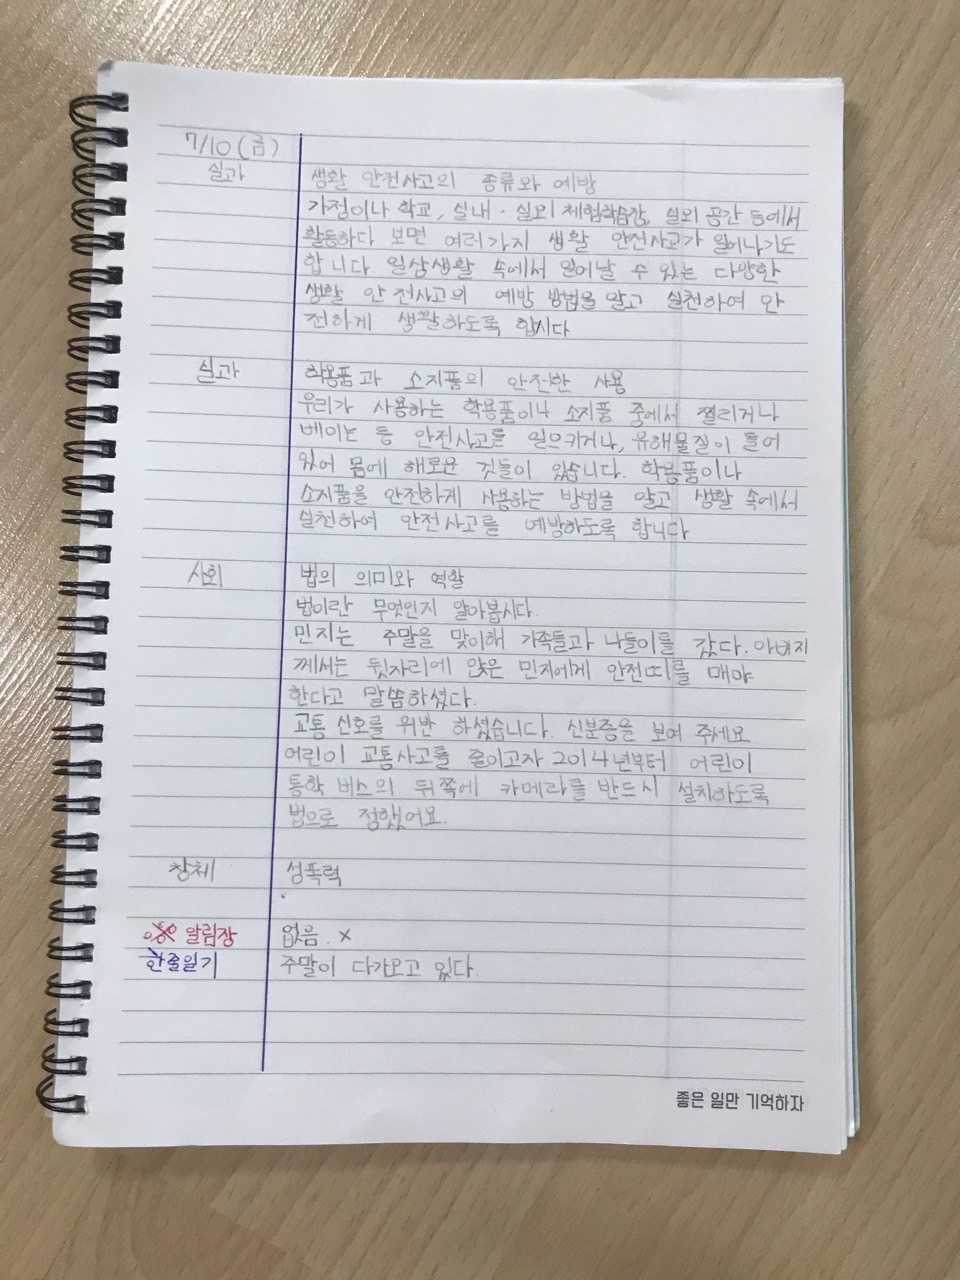 7/10(금)
실과 생활 안전사고의 종류와 예방
가정이나 학교, 실내·실외 체험학습장, 실외 공간 등에서
활동하다 보면 여러가지 생활 안전사고가 일어나기도
합니다 일상생활 속에서 일어날 수 있는 다양한
생활 안전사고의 예방 방법을 알고 실천하여 안
전하게 생활하도록 합시다
실과 학용품과 소지품의 안전한 사용
우리가 사용하는 학용품이나 소지품 중에서 찔리거나
베이는 등 안전사고를 일으키거나, 유해물질이 들어
있어 몸에 해로운 것들이 있습니다. 학용품이나
소지품을 안전하게 사용하는 방법을 알고 생활 속에서
실천하여 안전사고를 예방하도록 합니다
사회 법의 의미와 역할
법이란 무엇인지 알아봅시다.
민지는 주말을 맞이해 가족들과 나들이를 갔다. 아버지
께서는 뒷자리에 앉은 민지에게 안전띠를 매야
한다고 말씀하셨다.
교통 신호를 위반 하셨습니다. 신분증을 보여 주세요
어린이 교통사고를 줄이고자 2014년부터 어린이
통학 버스의 뒤쪽에 카메라를 반드시 설치하도록
법으로 정했어요.
창체 성폭력
알림장 없음. x
한줄일기 주말이 다가오고 있다.
좋은 일만 기억하자